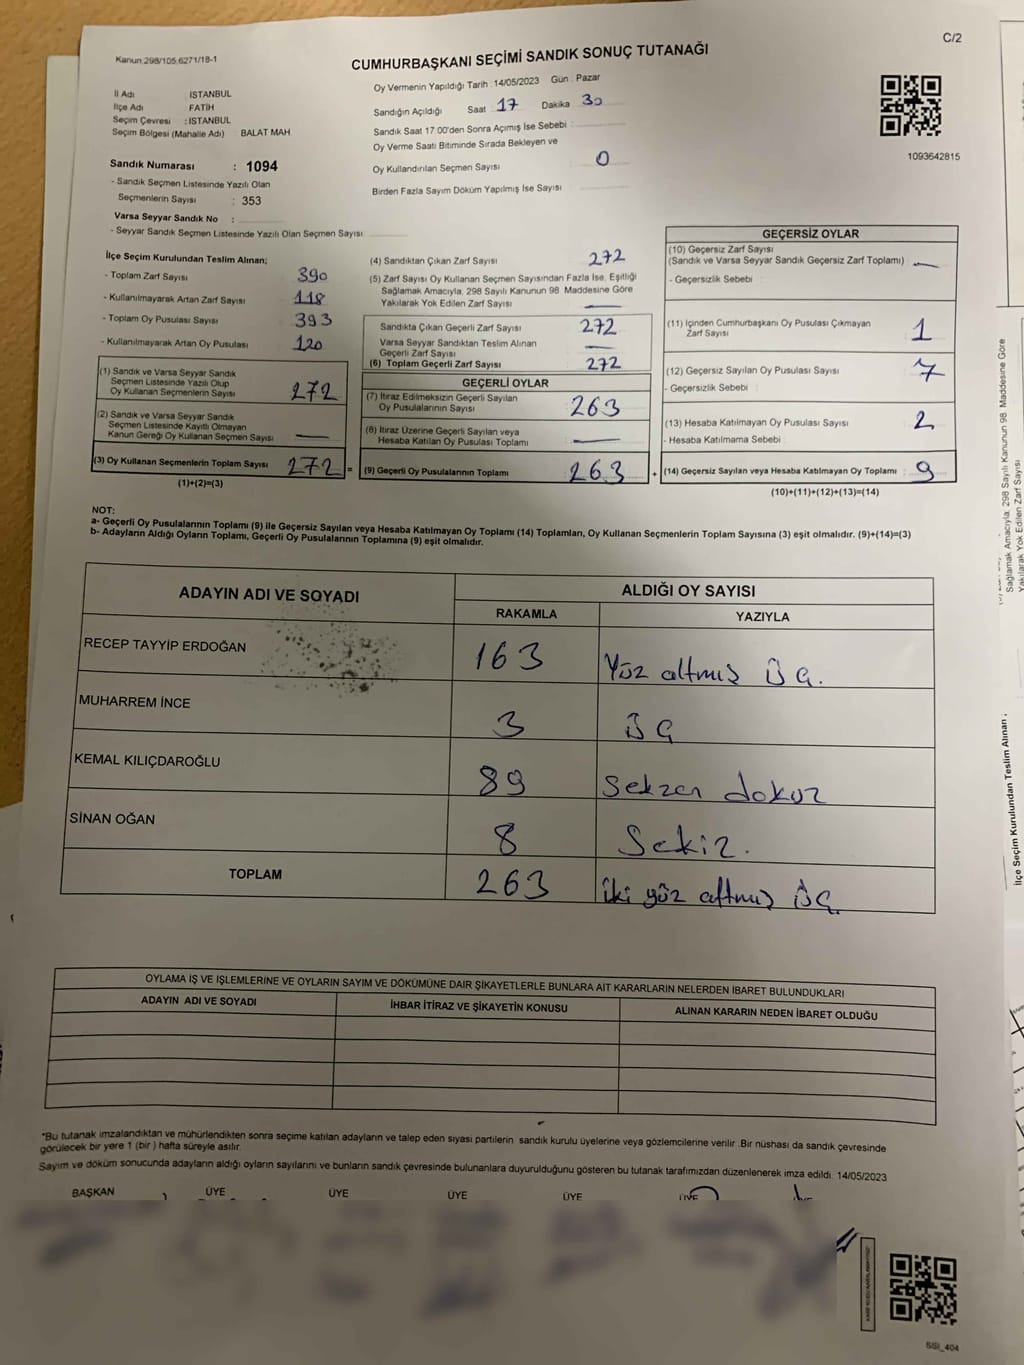 C/2
Kanun 298/105,6271/18-1
CUMHURBAŞKANI SEÇİMİ SANDIK SONUÇ TUTANAĞI
İl Adı İSTANBUL
İlçe Adı FATİH
Seçim Çevresi : İSTANBUL
Seçim Bölgesi (Mahalle Adı) BALAT MAH.
Sandık Numarası : 1094
- Sandık Seçmen Listesinde Yazılı Olan
Seçmenlerin Sayısı : 353
Varsa Seyyar Sandık No :
- Seyyar Sandık Seçmen Listesinde Yazılı Olan Seçmen Sayısı
Oy Vermenin Yapıldığı Tarih : 14/05/2023 Gün : Pazar
Sandığın Açıldığı Saat 17 Dakika 30
Sandık Saat 17:00'den Sonra Açımış İse Sebebi :
Oy Verme Saati Bitiminde Sırada Bekleyen ve
Oy Kullandırılan Seçmen Sayısı 0
Birden Fazla Sayım Döküm Yapılmış İse Sayısı
1093642815
İlçe Seçim Kurulundan Teslim Alınan;
- Toplam Zarf Sayısı 390
- Kullanılmayarak Artan Zarf Sayısı 118
- Toplam Oy Pusulası Sayısı 393
- Kullanılmayarak Artan Oy Pusulası 120
(1) Sandık ve Varsa Seyyar Sandık
Seçmen Listesinde Yazılı Olup
Oy Kullanan Seçmenlerin Sayısı 272
(2) Sandık ve Varsa Seyyar Sandık
Seçmen Listesinde Kayıtlı Olmayan
Kanun Gereği Oy Kullanan Seçmen Sayısı —
(3) Oy Kullanan Seçmenlerin Toplam Sayısı 272 =
(1)+(2)=(3)
(4) Sandıktan Çıkan Zarf Sayısı 272
(5) Zarf Sayısı Oy Kullanan Seçmen Sayısından Fazla İse, Eşitliği
Sağlamak Amacıyla, 298 Sayılı Kanunun 98. Maddesine Göre
Yakılarak Yok Edilen Zarf Sayısı —
Sandıkta Çıkan Geçerli Zarf Sayısı 272
Varsa Seyyar Sandıktan Teslim Alınan
Geçerli Zarf Sayısı —
(6) Toplam Geçerli Zarf Sayısı 272
GEÇERLİ OYLAR
(7) İtiraz Edilmeksizin Geçerli Sayılan
Oy Pusulalarının Sayısı 263
(8) İtiraz Üzerine Geçerli Sayılan veya
Hesaba Katılan Oy Pusulası Toplamı —
(9) Geçerli Oy Pusulalarının Toplamı 263 +
GEÇERSİZ OYLAR
(10) Geçersiz Zarf Sayısı
(Sandık ve Varsa Seyyar Sandık Geçersiz Zarf Toplamı) —
- Geçersizlik Sebebi :
(11) İçinden Cumhurbaşkanı Oy Pusulası Çıkmayan
Zarf Sayısı 1
(12) Geçersiz Sayılan Oy Pusulası Sayısı 7
- Geçersizlik Sebebi :
(13) Hesaba Katılmayan Oy Pusulası Sayısı 2
- Hesaba Katılmama Sebebi :
(14) Geçersiz Sayılan veya Hesaba Katılmayan Oy Toplamı : 9
(10)+(11)+(12)+(13)=(14)
NOT:
a- Geçerli Oy Pusulalarının Toplamı (9) ile Geçersiz Sayılan veya Hesaba Katılmayan Oy Toplamı (14) Toplamları, Oy Kullanan Seçmenlerin Toplam Sayısına (3) eşit olmalıdır. (9)+(14)=(3)
b- Adayların Aldığı Oyların Toplamı, Geçerli Oy Pusulalarının Toplamına (9) eşit olmalıdır.
ADAYIN ADI VE SOYADI ALDIĞI OY SAYISI
RAKAMLA YAZIYLA
RECEP TAYYİP ERDOĞAN 163 Yüz altmış üç.
MUHARREM İNCE 3 üç
KEMAL KILIÇDAROĞLU 89 seksen dokuz
SİNAN OĞAN 8 Sekiz.
TOPLAM 263 iki yüz altmış üç.
OYLAMA İŞ VE İŞLEMLERİNE VE OYLARIN SAYIM VE DÖKÜMÜNE DAİR ŞİKAYETLERLE BUNLARA AİT KARARLARIN NELERDEN İBARET BULUNDUKLARI
ADAYIN ADI VE SOYADI İHBAR İTİRAZ VE ŞİKAYETİN KONUSU ALINAN KARARIN NEDEN İBARET OLDUĞU
*Bu tutanak imzalandıktan ve mühürlendikten sonra seçime katılan adayların ve talep eden siyasi partilerin sandık kurulu üyelerine veya gözlemcilerine verilir. Bir nüshası da sandık çevresinde
görülecek bir yere 1 (bir) hafta süreyle asılır.
Sayım ve döküm sonucunda adayların aldığı oyların sayılarını ve bunların sandık çevresinde bulunanlara duyurulduğunu gösteren bu tutanak tarafımızdan düzenlenerek imza edildi. 14/05/2023
BAŞKAN ÜYE ÜYE ÜYE ÜYE ÜYE
SSI_404
Sağlamak Amacıyla, 298 Sayılı Kanunun 98. Maddesine Göre
Yakılarak Yok Edilen Zarf Sayısı
İlçe Seçim Kurulundan Teslim Alınan ;